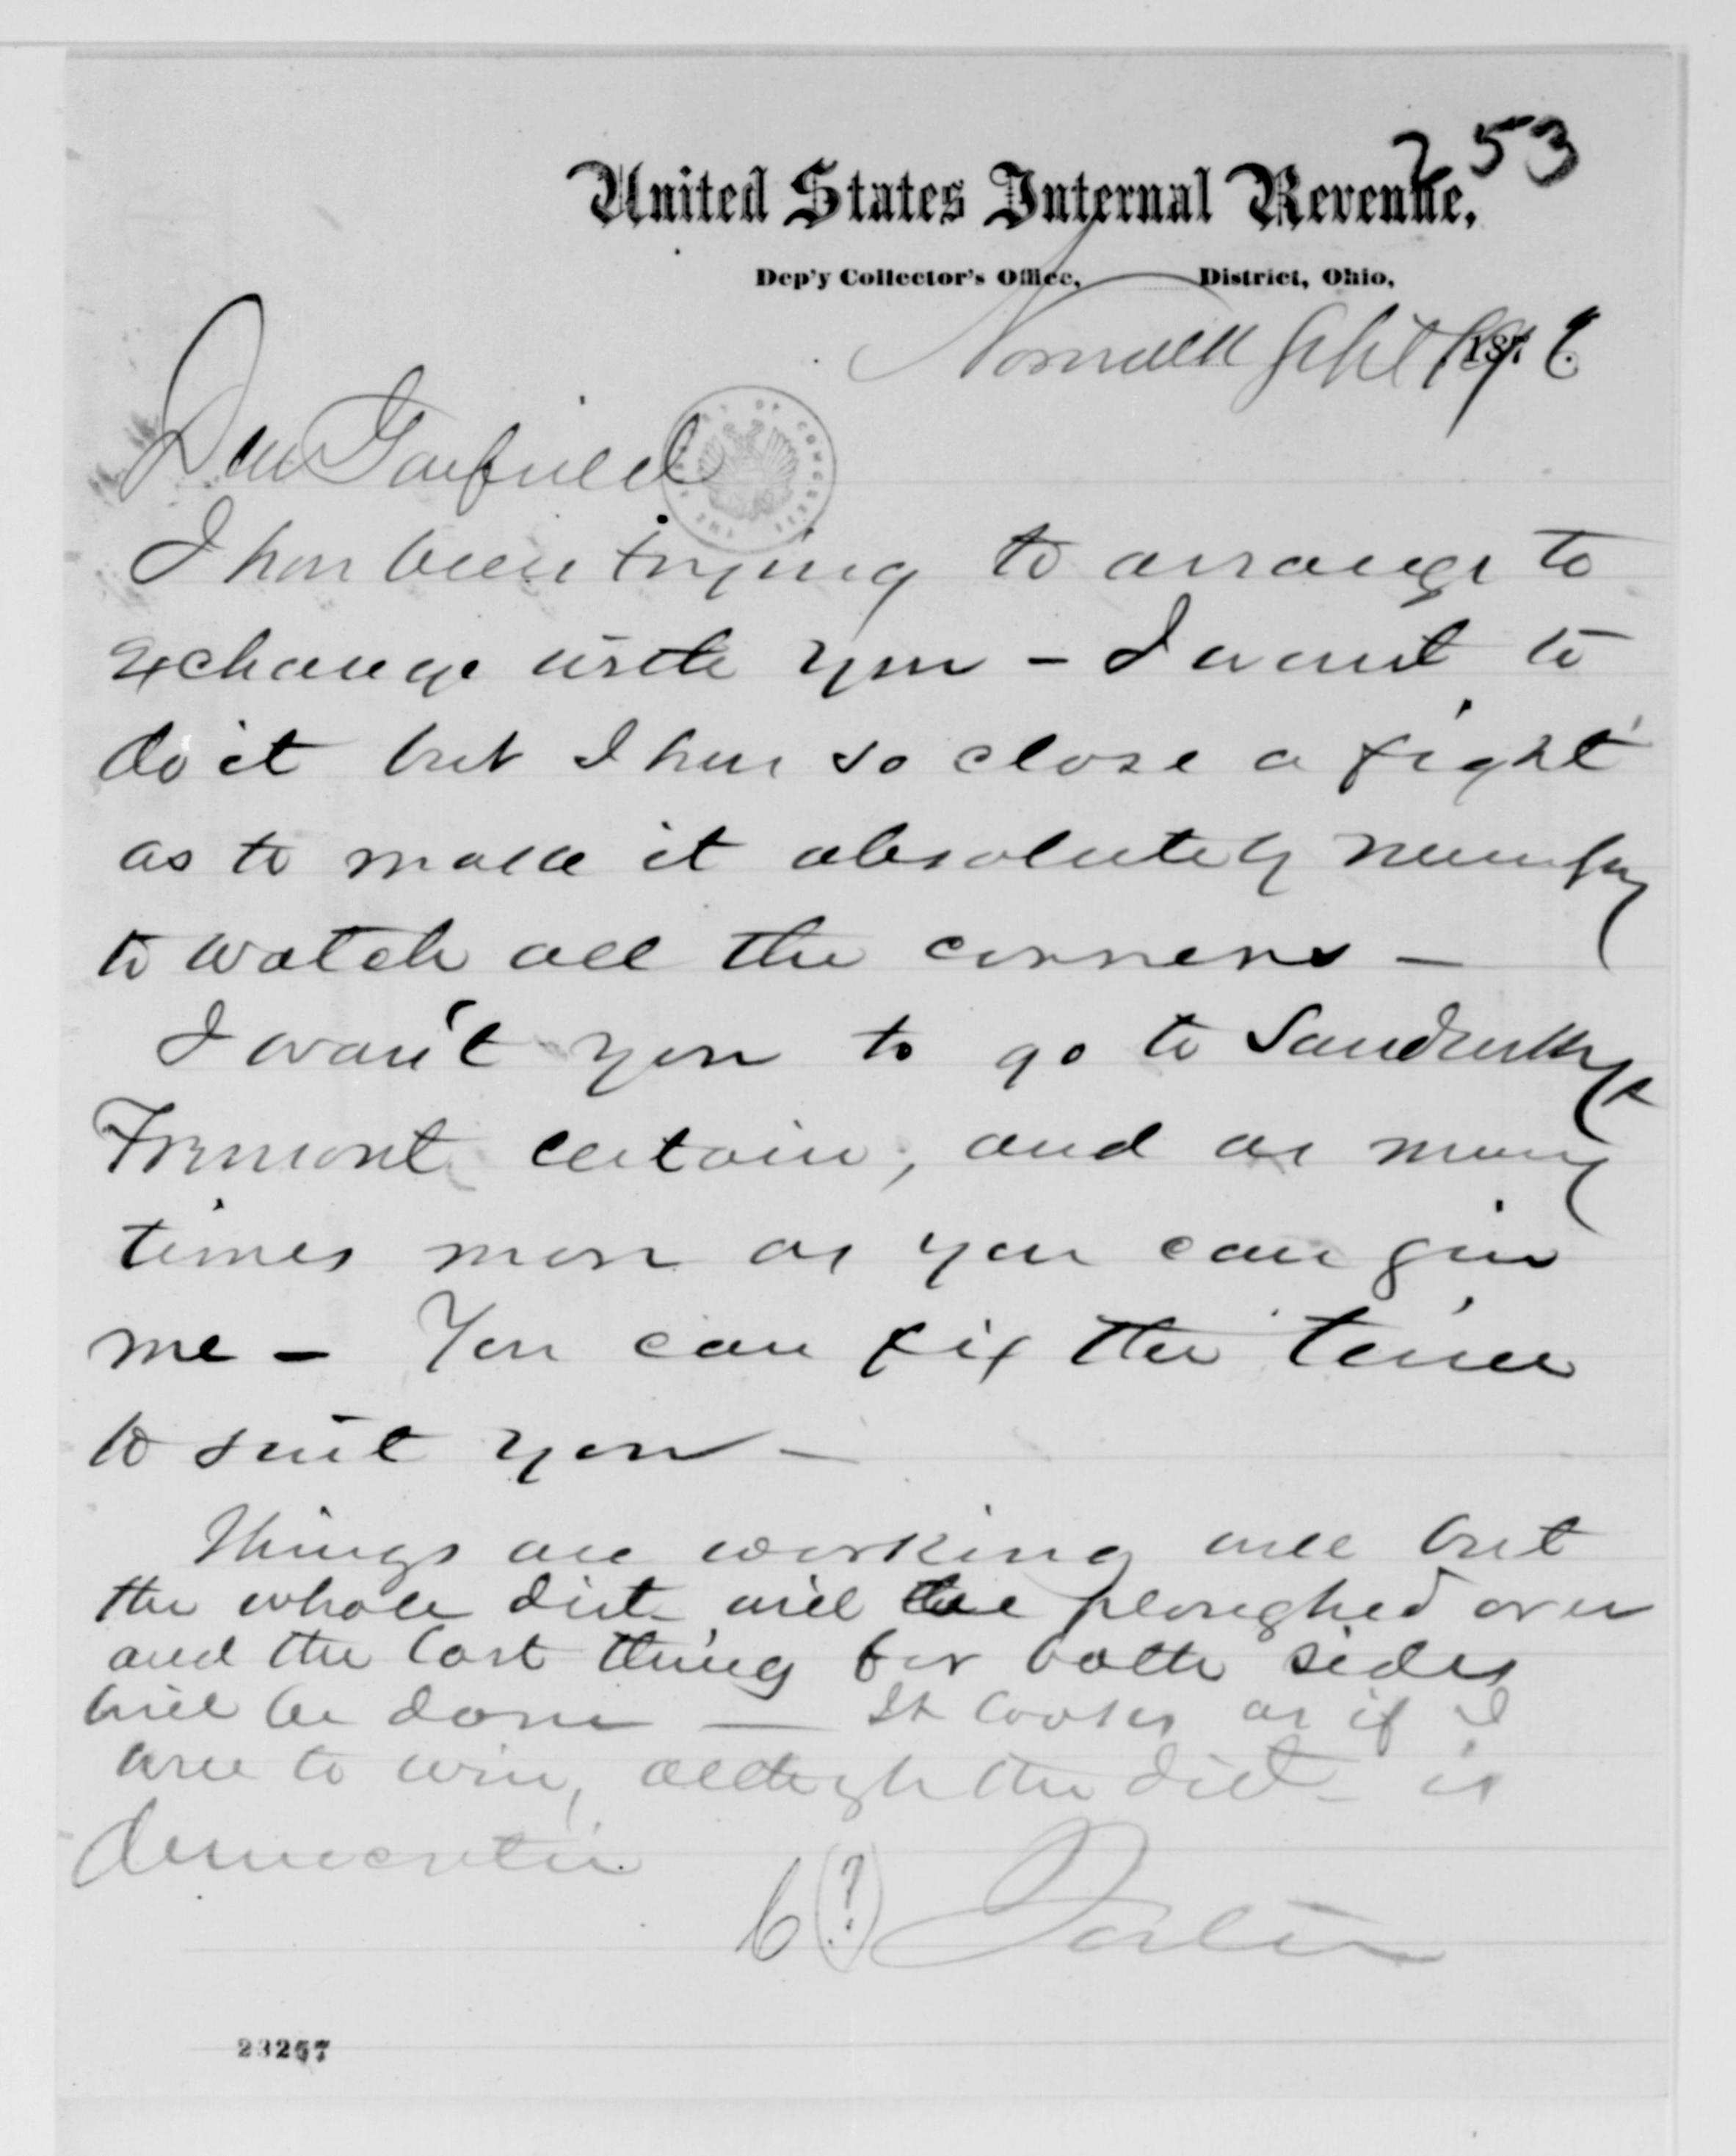 253
United States Internal Revenue,
Dep'y Collector's Office, District, Ohio,
Norwalk Sept 187 6
Dear Garfield
I have been trying to arrange to
exchange with you – I want to
do it but I have so close a fight
as to make it absolutely necessary
to watch all the corners –
I want you to go to Sandusky &
Fremont certain, and as many
times more as you can give
me – You can fix the time
to suit you –
Things are working well but
the whole dist. will be ploughed over
and the last thing for both sides
will be done — It looks as if I
were to win, although the dist. is
democratic
(?) Foster
23257